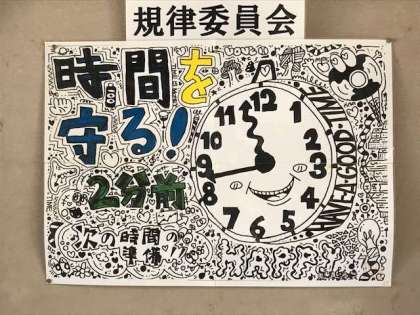 規律委員会
時間を
守る!
2分前
次の時間の
準備!!
HAPPY
HAVE A GOOD TIME
12
1
2
3
4
5
6
7
8
9
10
11